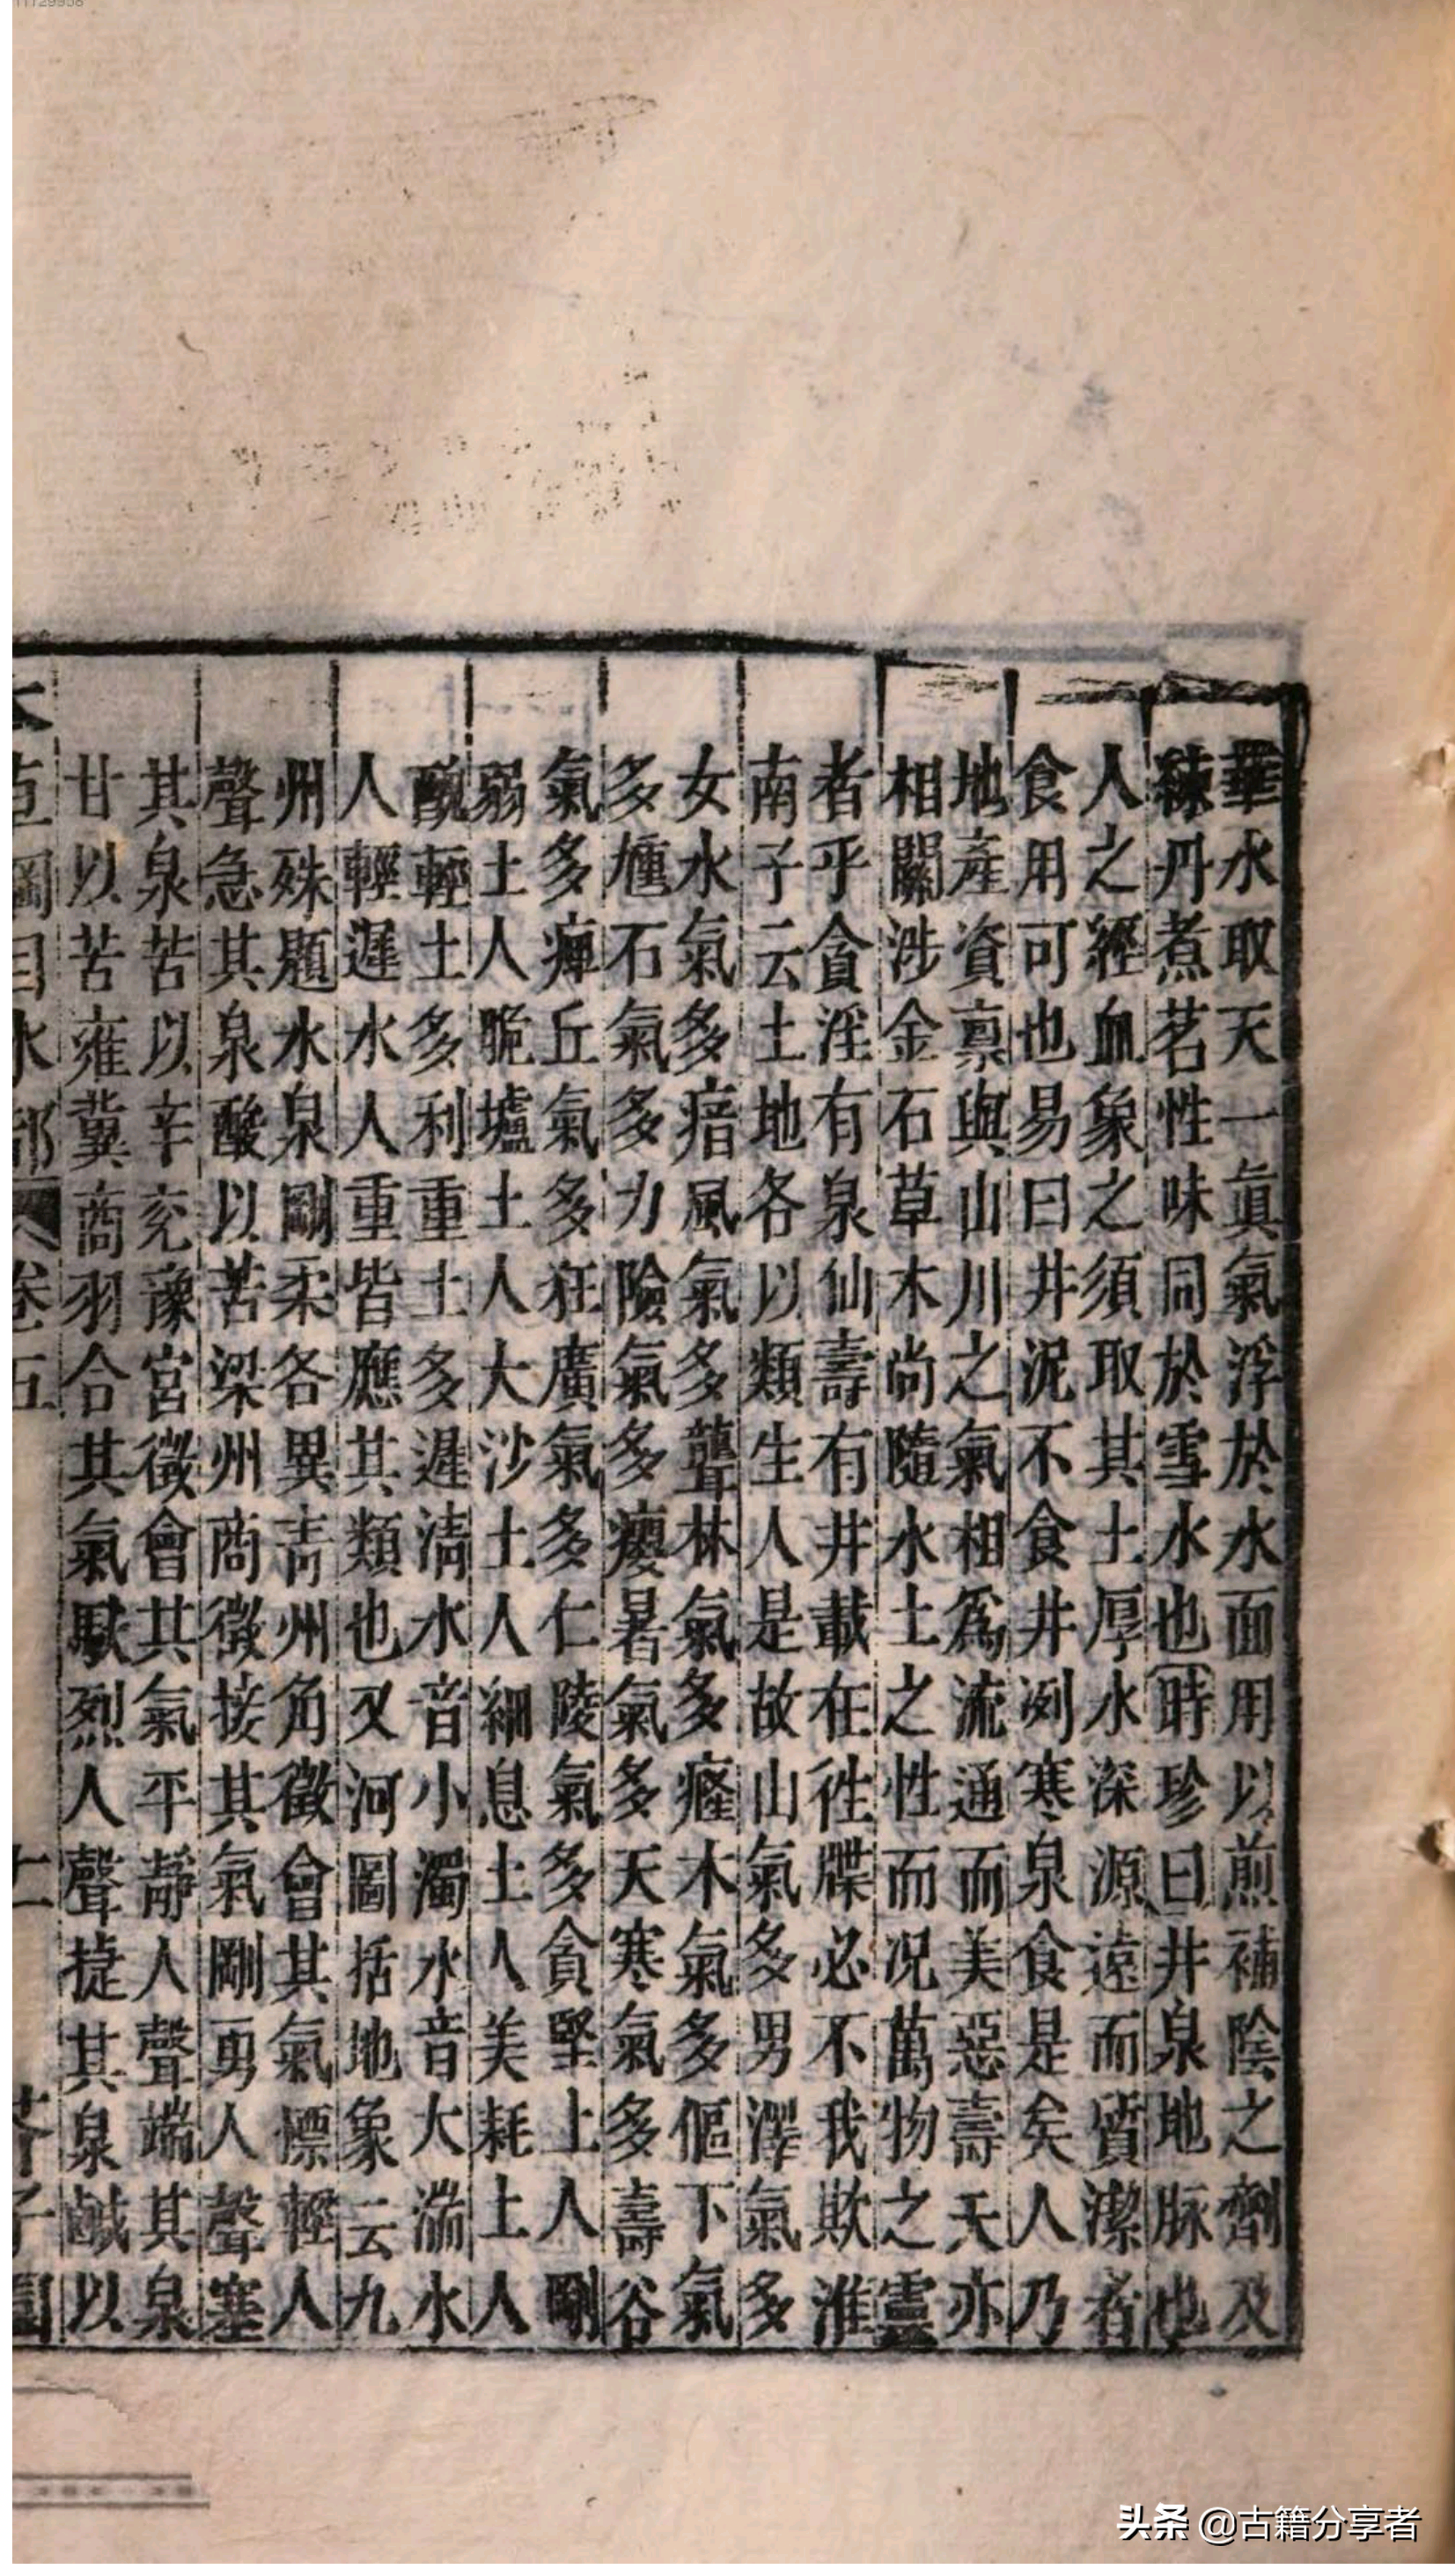 華水取天一眞氣浮於水面用以煎補陰之劑及
煉丹煮茗性味同於雪水也時珍曰井泉地脉也
人之經血象之須取其土厚水深源遠而質潔者
食用可也易曰井泥不食井冽寒泉食是矣人乃
地產資禀與山川之氣相爲流通而美惡壽夭亦
相關涉金石草木尚隨水土之性而况萬物之靈
者乎貪淫有泉仙壽有井載在徃牒必不我欺淮
南子云土地各以類生人是故山氣多男澤氣多
女水氣多瘖風氣多聾林氣多癃木氣多傴下氣
多尰石氣多力險氣多癭暑氣多夭寒氣多壽谷
氣多痺丘氣多狂廣氣多仁陵氣多貪堅土人剛
弱土人脆壚土人大沙土人細息土人美耗土人
醜輕土多利重土多遲淸水音小濁水音大湍水
人輕遲水人重皆應其類也又河圖括地象云九
州殊題水泉剛柔各異靑州角徵會其氣慓輕人
聲急其泉酸以苦梁州商徵接其氣剛勇人聲塞
其泉苦以辛兖豫宮徵會其氣平靜人聲端其泉
甘以苦雍冀商羽合其氣駃烈人聲捷其泉鹹以
本草綱目水部 卷五 十一 芥子園
头条 @古籍分享者